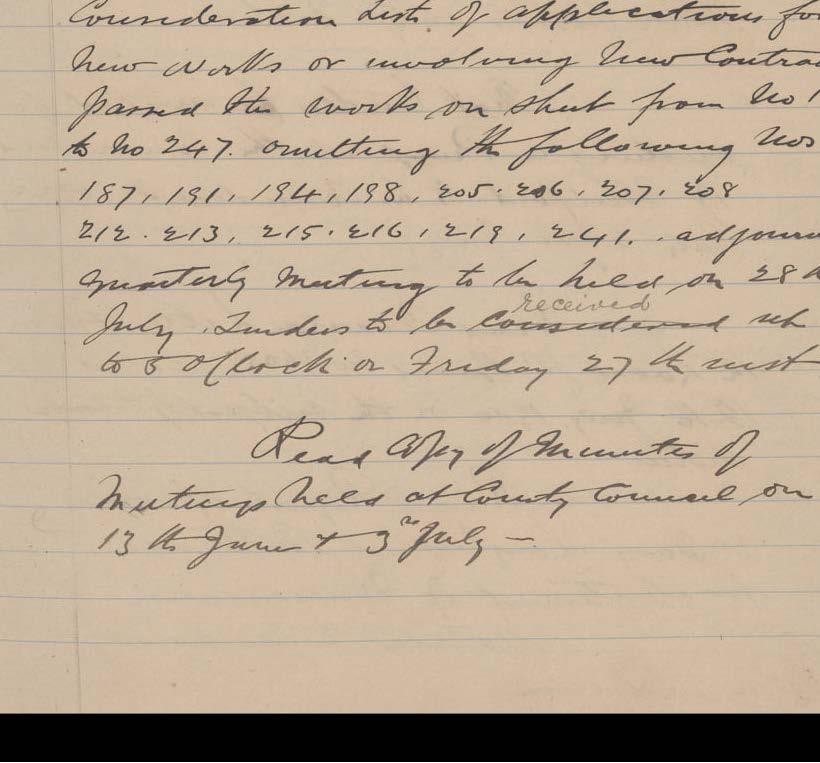 Consideration Lists of applications for
New works or involving New Contrac
Passed the works on sheet from No 1
to No 247. omitting the following Nos
187, 191, 194, 198, 205. 206. 207. 208
212. 213, 215. 216, 219, 241. adjourn
Quarterly Meeting to be held on 28th
received
July. Tenders to be considered up
to 5 O'Clock on Friday 27th inst
Read Copy of Minutes of
Meetings held at County Council on
13th June + 3rd July –